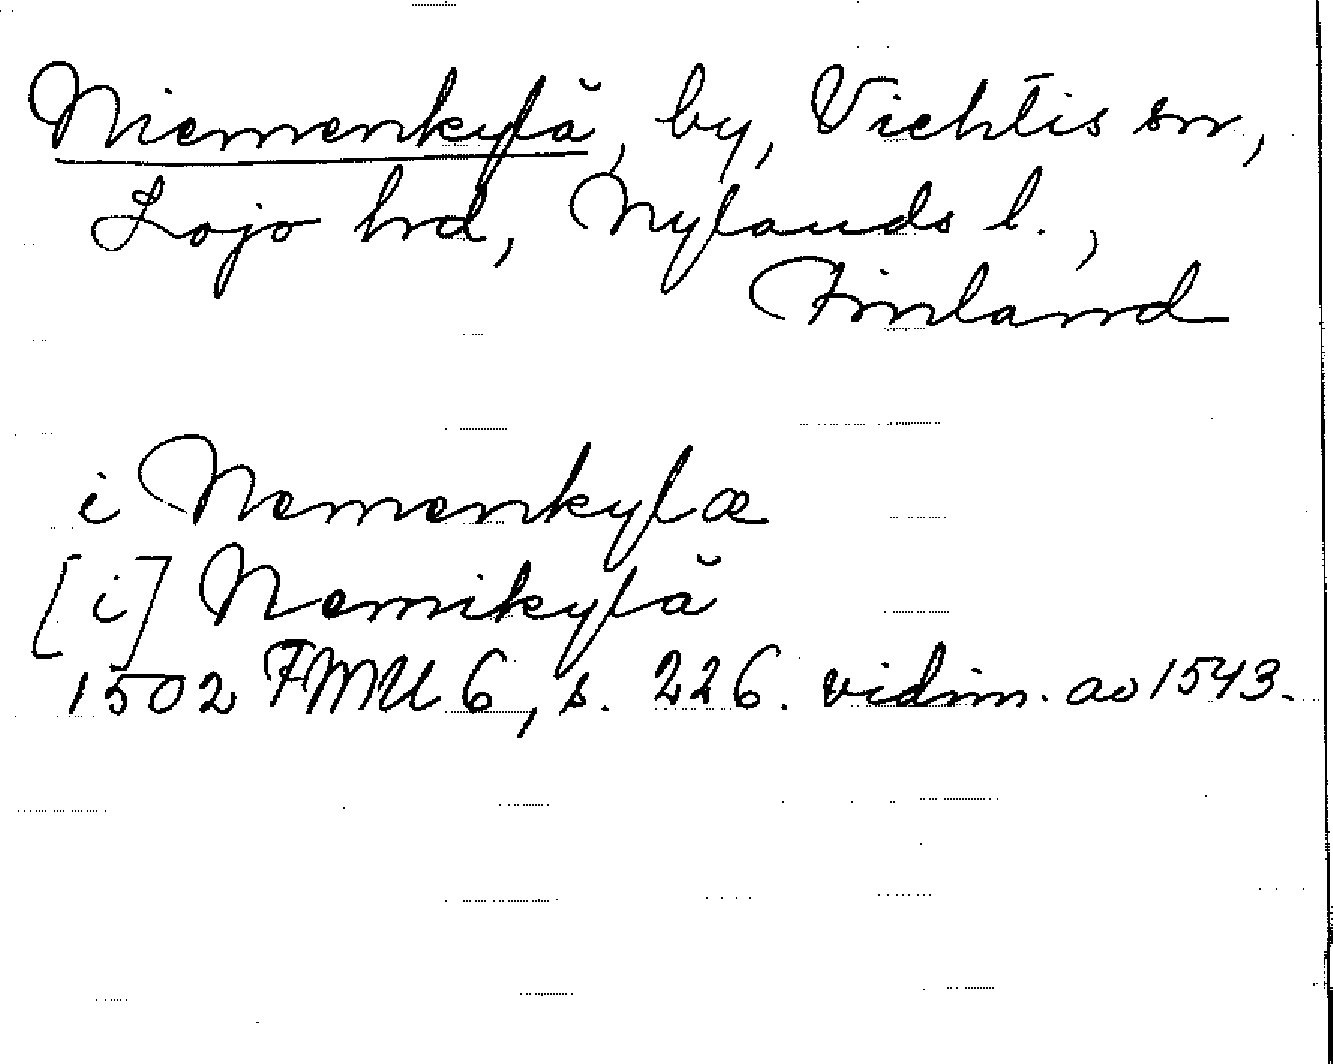 Niemenkylä, by, Vichtis sn,
Lojo hd, Nylands l.,
Finland
i Nemenkylæ
[i] Nemikylä
1502 FMU 6, s. 226. vidim. av 1543.